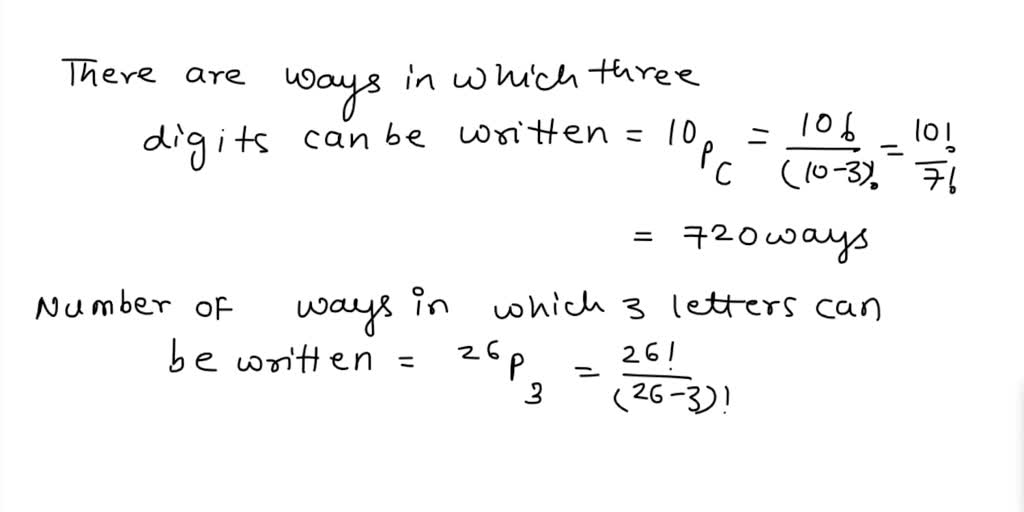 There are ways in which three
digits can be written = 10 P C = 10! / (10-3)! = 10! / 7!
= 720 ways
Number of ways in which 3 letters can
be written = 26 P 3 = 26! / (26-3)!